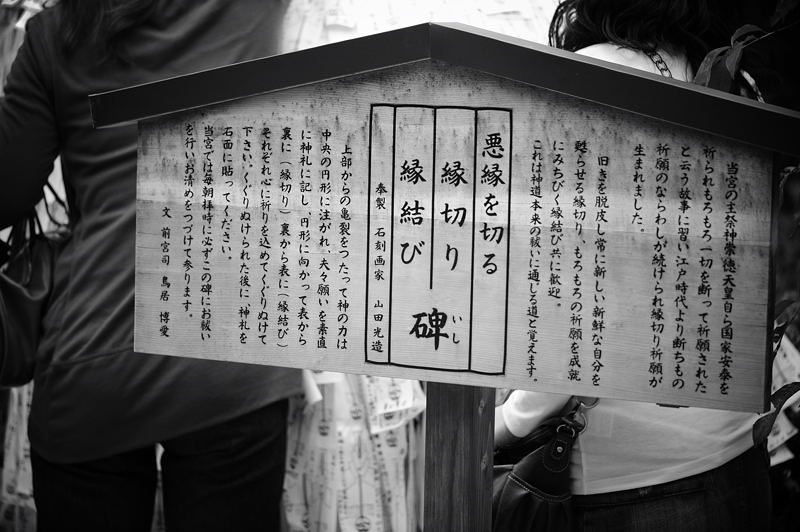 当宮の主祭神崇徳天皇自ら国家安泰を
祈られもろもろ一切を断って祈願された
と云う故事に習い江戸時代より断ちもの
祈願のならわしが続けられ縁切り祈願が
生まれました。
旧きを脱皮し常に新しい新鮮な自分を
甦らせる縁切り、もろもろの祈願を成就
にみちびく縁結び共に歓迎。
これは神道本来の祓いに通じる道と覚えます。
悪縁を切る
縁切り
縁結び
碑
いし
奉製 石刻画家 山田光造
上部からの亀裂をつたって神の力は
中央の円形に注がれ、夫々願いを素直
に神札に記し、円形に向かって表から
裏に(縁切り)裏から表に(縁結び)
それぞれ心に祈りを込めてくぐりぬけて
下さい。くぐりぬけられた後に神札を
石面に貼ってください。
当宮では毎朝拝時に必ずこの碑にお祓い
を行いお清めをつづけて参ります。
文 前宮司 鳥居 博愛